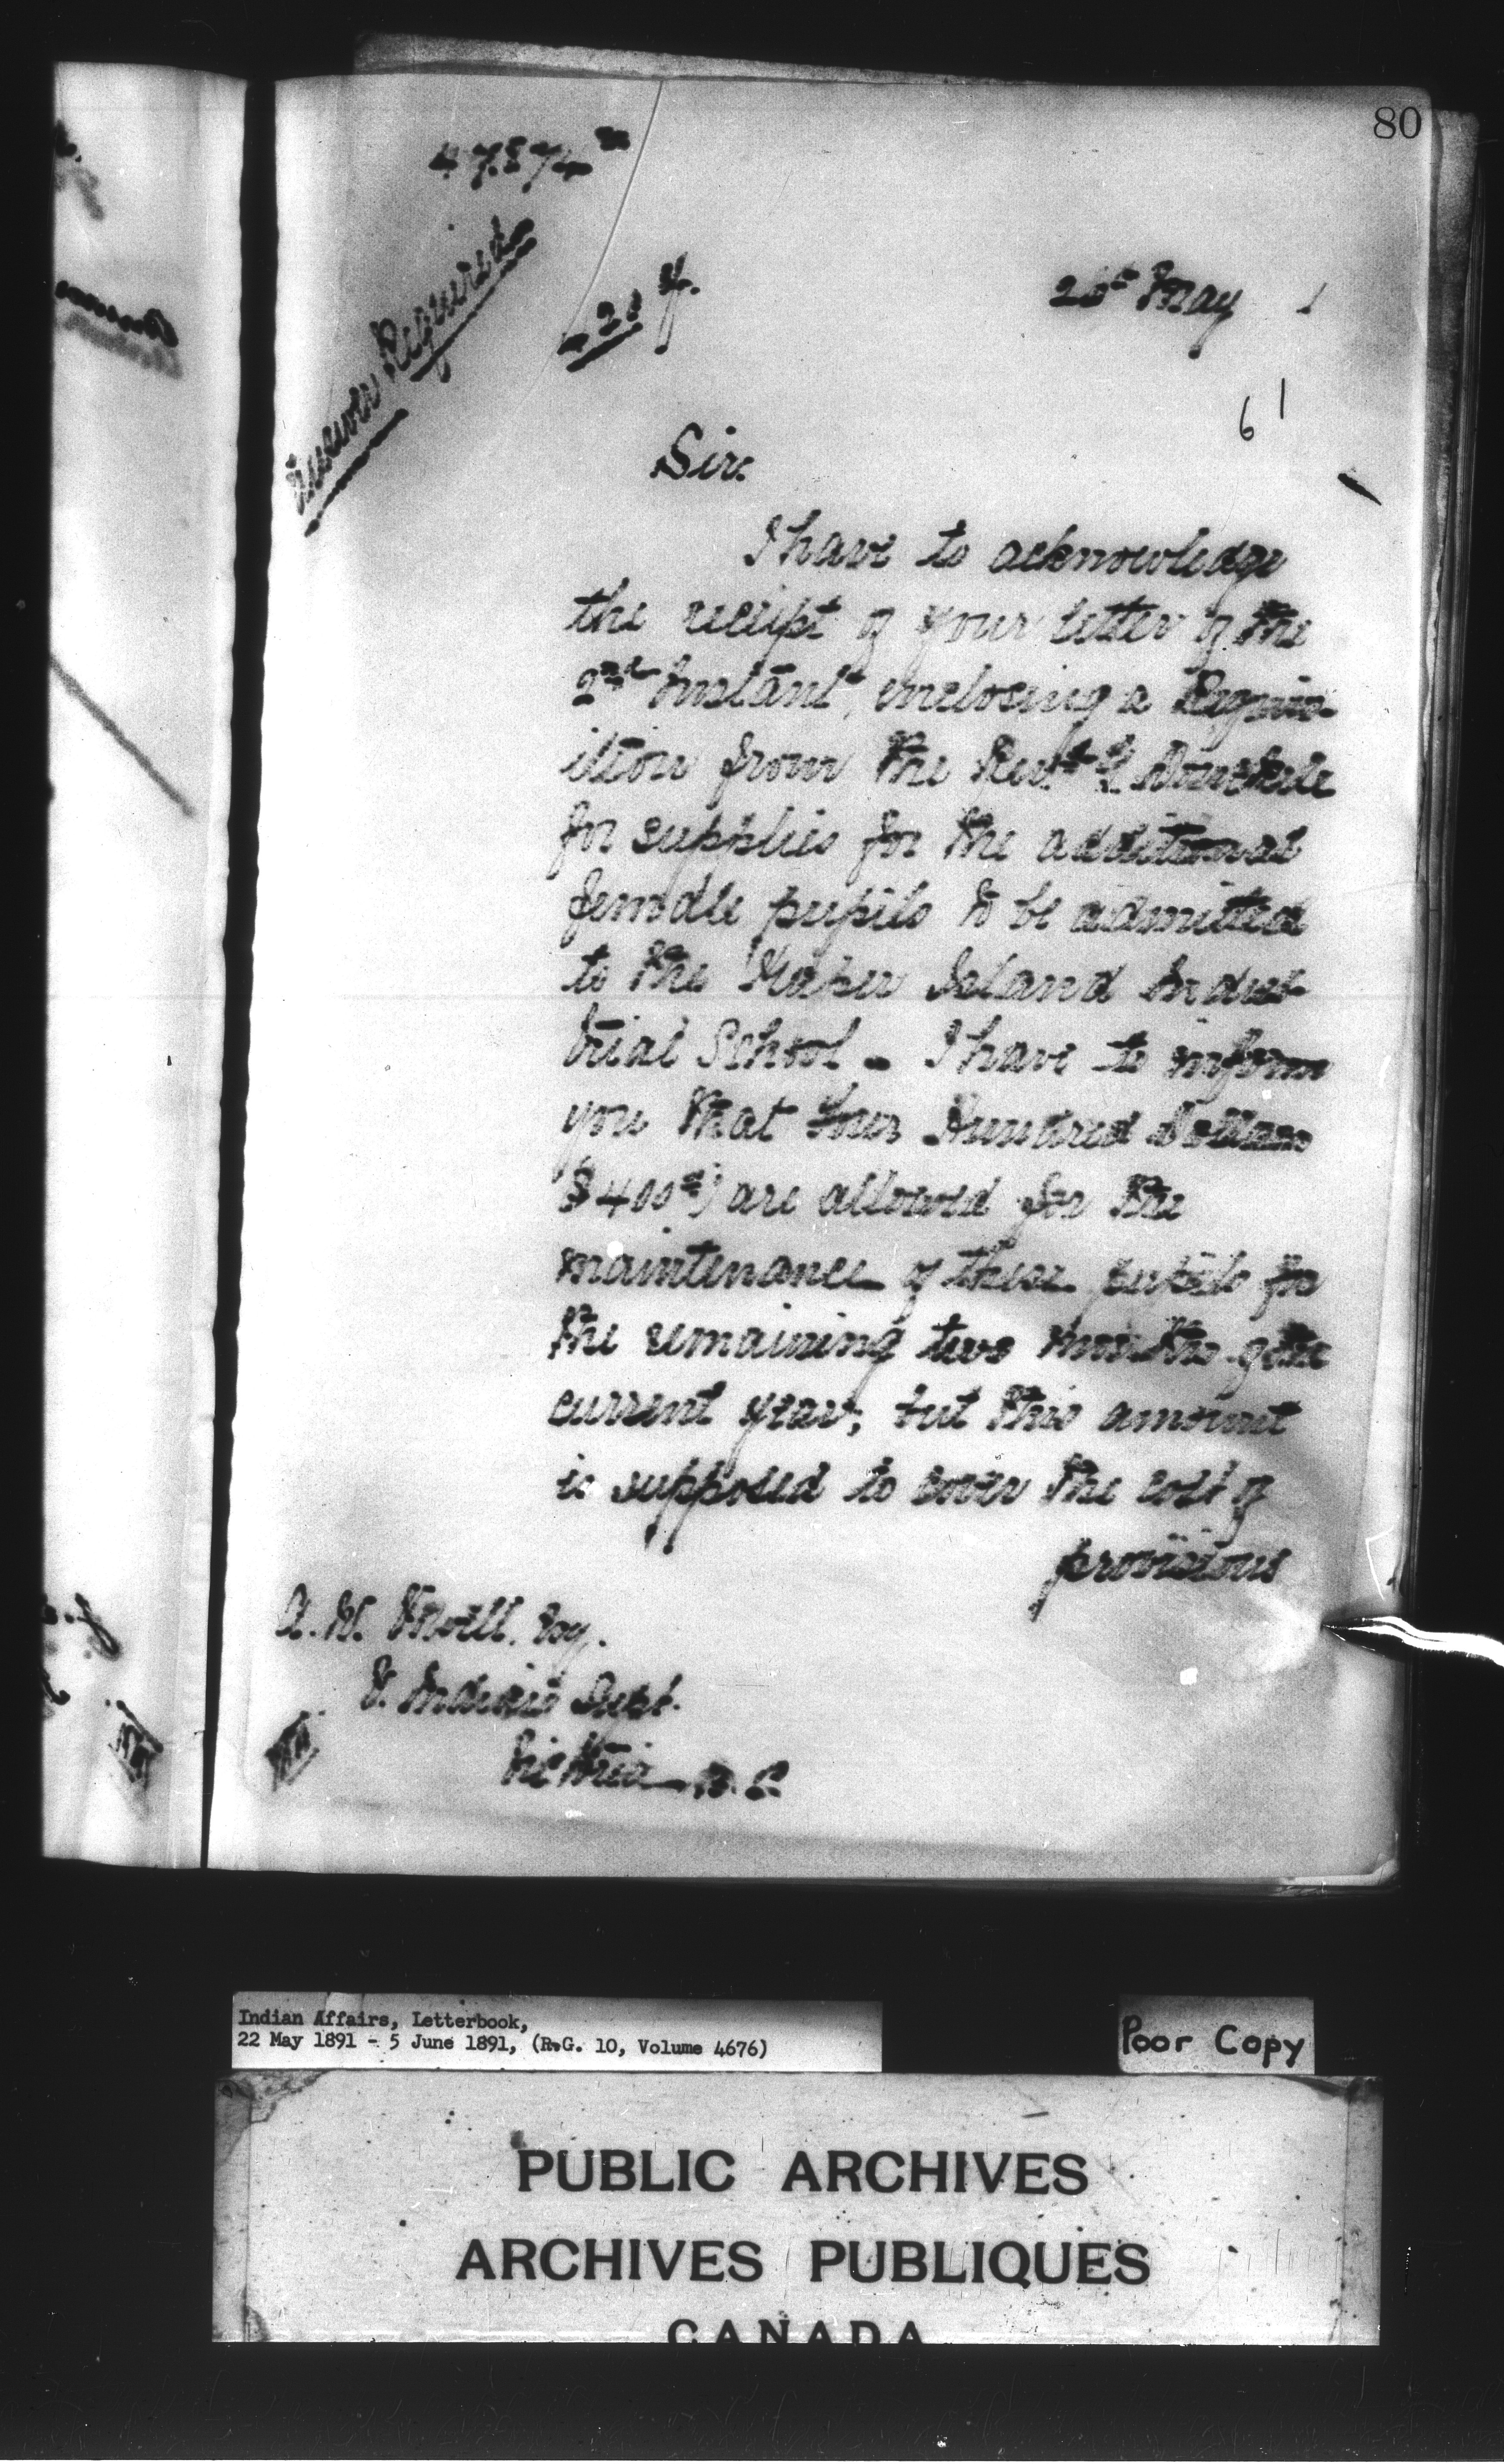 80
Answer Required
May 1
6 1
Sir.
I have to acknowledge
the receipt of your letter of the
2nd Instant, inclosing a Requis-
ition from the Revd G Donckele
for supplies for the additional
female pupils to be admitted
to the Kuper Island Indus-
trial School - I have to inform
you that Four Hundred Dollars
($400) are allowed for the
maintenance of these pupils for
the remaining two months of the
current year, but this amount
is supposed to cover the cost of
provisions
A. W. Vowell. Esq.
Indian Supt.
Victoria B.C.
Indian Affairs, Letterbook,
22 May 1891 - 5 June 1891, (R.G. 10, Volume 4676)
Poor Copy
PUBLIC ARCHIVES
ARCHIVES PUBLIQUES
CANADA